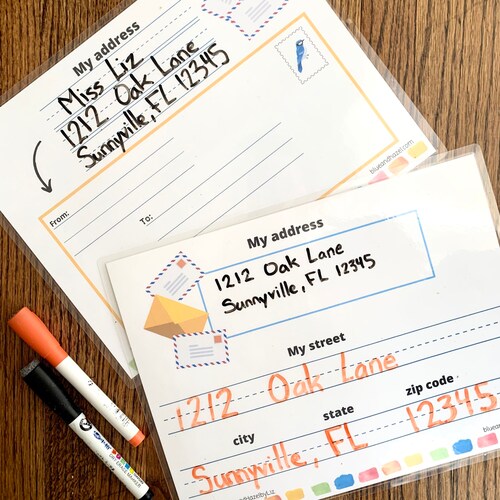 My address
Miss Liz
1212 Oak Lane
Sunnyville, FL 12345
From:
To:
blueandhazel.com
My address
1212 Oak Lane
Sunnyville, FL 12345
My street
1212 Oak Lane
city
state
zip code
Sunnyville, FL 12345